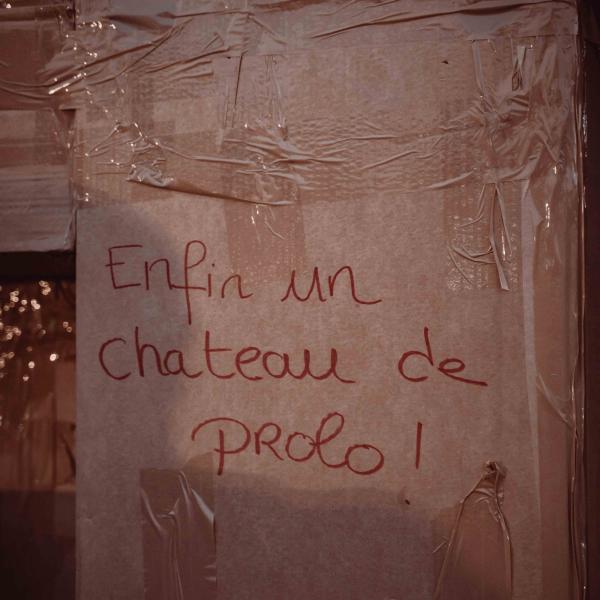 Enfin un
chateau de
PROlo !